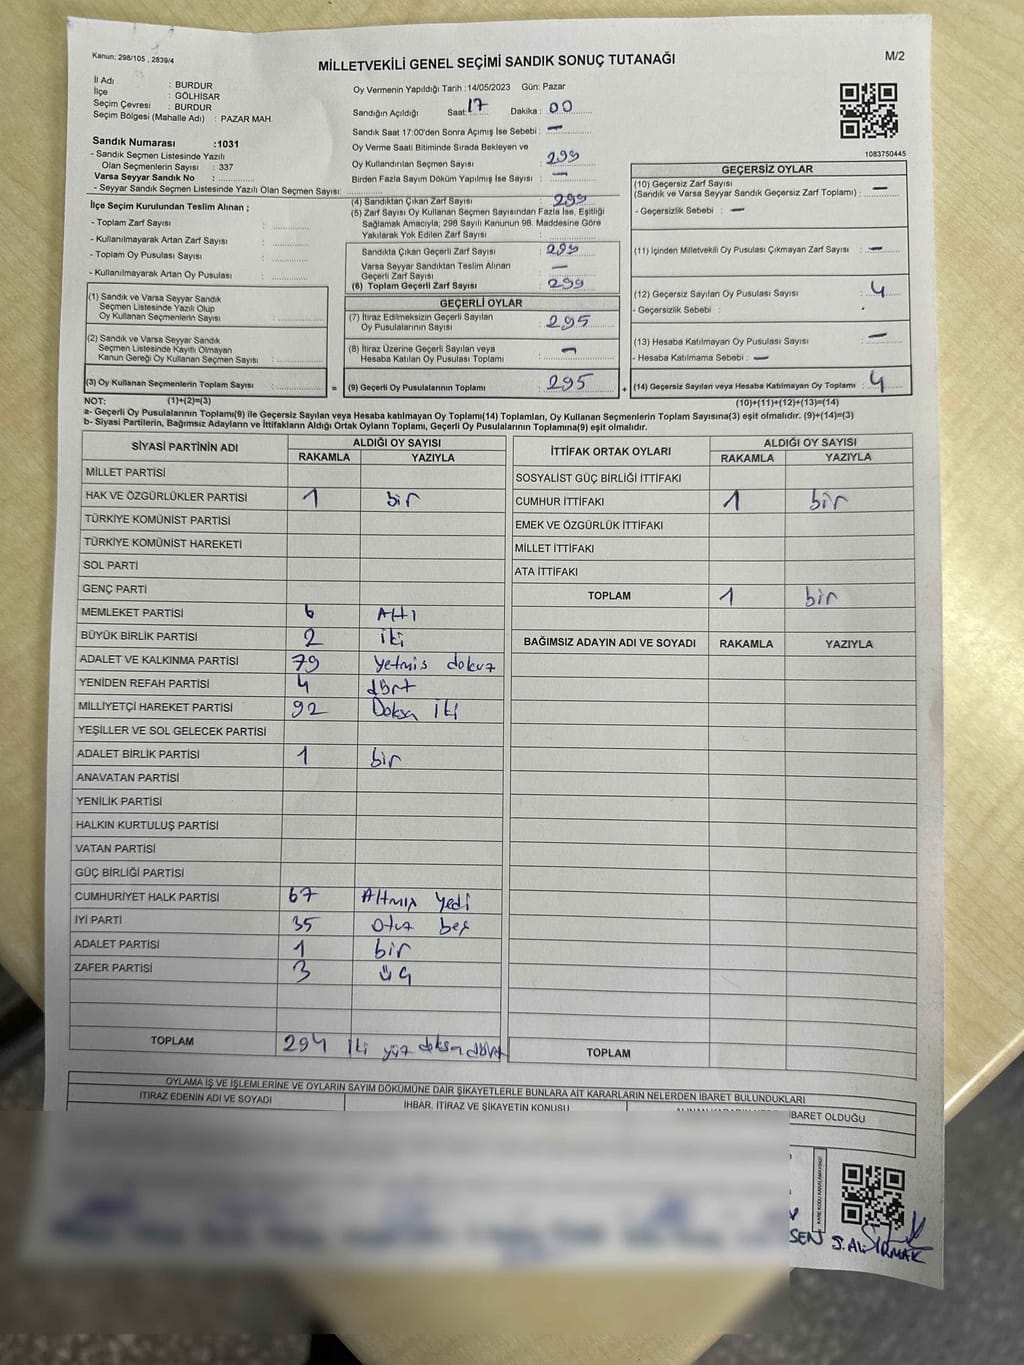 Kanun; 298/105 , 2839/4
MİLLETVEKİLİ GENEL SEÇİMİ SANDIK SONUÇ TUTANAĞI
M/2
İl Adı : BURDUR
İlçe : GÖLHİSAR
Seçim Çevresi : BURDUR
Seçim Bölgesi (Mahalle Adı) : PAZAR MAH.
Sandık Numarası :1031
- Sandık Seçmen Listesinde Yazılı
Olan Seçmenlerin Sayısı : 337
Varsa Seyyar Sandık No :
- Seyyar Sandık Seçmen Listesinde Yazılı Olan Seçmen Sayısı:
Oy Vermenin Yapıldığı Tarih :14/05/2023 Gün: Pazar
Sandığın Açıldığı Saat 17 Dakika : 00
Sandık Saat 17:00'den Sonra Açımış İse Sebebi : —
Oy Verme Saati Bitiminde Sırada Bekleyen ve
Oy Kullandırılan Seçmen Sayısı : 299
Birden Fazla Sayım Döküm Yapılmış İse Sayısı : —
1083750445
İlçe Seçim Kurulundan Teslim Alınan ;
- Toplam Zarf Sayısı :
- Kullanılmayarak Artan Zarf Sayısı :
- Toplam Oy Pusulası Sayısı :
- Kullanılmayarak Artan Oy Pusulası :
(1) Sandık ve Varsa Seyyar Sandık
Seçmen Listesinde Yazılı Olup
Oy Kullanan Seçmenlerin Sayısı :
(2) Sandık ve Varsa Seyyar Sandık
Seçmen Listesinde Kayıtlı Olmayan
Kanun Gereği Oy Kullanan Seçmen Sayısı :
(3) Oy Kullanan Seçmenlerin Toplam Sayısı :
(4) Sandıktan Çıkan Zarf Sayısı : 299
(5) Zarf Sayısı Oy Kullanan Seçmen Sayısından Fazla İse, Eşitliği
Sağlamak Amacıyla, 298 Sayılı Kanunun 98. Maddesine Göre
Yakılarak Yok Edilen Zarf Sayısı :
Sandıkta Çıkan Geçerli Zarf Sayısı : 299
Varsa Seyyar Sandıktan Teslim Alınan
Geçerli Zarf Sayısı : —
(6) Toplam Geçerli Zarf Sayısı : 299
GEÇERLİ OYLAR
(7) İtiraz Edilmeksizin Geçerli Sayılan
Oy Pusulalarının Sayısı : 295
(8) İtiraz Üzerine Geçerli Sayılan veya
Hesaba Katılan Oy Pusulası Toplamı : —
= (9) Geçerli Oy Pusulalarının Toplamı : 295
GEÇERSİZ OYLAR
(10) Geçersiz Zarf Sayısı
(Sandık ve Varsa Seyyar Sandık Geçersiz Zarf Toplamı) : —
- Geçersizlik Sebebi : —
(11) İçinden Milletvekili Oy Pusulası Çıkmayan Zarf Sayısı : —
(12) Geçersiz Sayılan Oy Pusulası Sayısı : 4
- Geçersizlik Sebebi :
(13) Hesaba Katılmayan Oy Pusulası Sayısı : —
- Hesaba Katılmama Sebebi : —
+ (14) Geçersiz Sayılan veya Hesaba Katılmayan Oy Toplamı : 4
NOT: (1)+(2)=(3) (10)+(11)+(12)+(13)=(14)
a- Geçerli Oy Pusulalarının Toplamı(9) ile Geçersiz Sayılan veya Hesaba katılmayan Oy Toplamı(14) Toplamları, Oy Kullanan Seçmenlerin Toplam Sayısına(3) eşit olmalıdır. (9)+(14)=(3)
b- Siyasi Partilerin, Bağımsız Adayların ve İttifakların Aldığı Ortak Oyların Toplamı, Geçerli Oy Pusulalarının Toplamına(9) eşit olmalıdır.
SİYASİ PARTİNİN ADI ALDIĞI OY SAYISI
RAKAMLA YAZIYLA
MİLLET PARTİSİ
HAK VE ÖZGÜRLÜKLER PARTİSİ 1 bir
TÜRKİYE KOMÜNİST PARTİSİ
TÜRKİYE KOMÜNİST HAREKETİ
SOL PARTİ
GENÇ PARTİ
MEMLEKET PARTİSİ 6 Altı
BÜYÜK BİRLİK PARTİSİ 2 iki
ADALET VE KALKINMA PARTİSİ 79 Yetmis dokuz
YENİDEN REFAH PARTİSİ 4 dört
MİLLİYETÇİ HAREKET PARTİSİ 92 Doksan İki
YEŞİLLER VE SOL GELECEK PARTİSİ
ADALET BİRLİK PARTİSİ 1 bir
ANAVATAN PARTİSİ
YENİLİK PARTİSİ
HALKIN KURTULUŞ PARTİSİ
VATAN PARTİSİ
GÜÇ BİRLİĞİ PARTİSİ
CUMHURİYET HALK PARTİSİ 67 Altmış Yedi
İYİ PARTİ 35 Otuz beş
ADALET PARTİSİ 1 bir
ZAFER PARTİSİ 3 üç
TOPLAM 294 İki yüz doksan dört
İTTİFAK ORTAK OYLARI ALDIĞI OY SAYISI
RAKAMLA YAZIYLA
SOSYALİST GÜÇ BİRLİĞİ İTTİFAKI
CUMHUR İTTİFAKI 1 bir
EMEK VE ÖZGÜRLÜK İTTİFAKI
MİLLET İTTİFAKI
ATA İTTİFAKI
TOPLAM 1 bir
BAĞIMSIZ ADAYIN ADI VE SOYADI RAKAMLA YAZIYLA
TOPLAM
OYLAMA İŞ VE İŞLEMLERİNE VE OYLARIN SAYIM DÖKÜMÜNE DAİR ŞİKAYETLERLE BUNLARA AİT KARARLARIN NELERDEN İBARET BULUNDUKLARI
İTİRAZ EDENİN ADI VE SOYADI İHBAR, İTİRAZ VE ŞİKAYETİN KONUSU İBARET OLDUĞU
ŞEN S. ALİ IRMAK